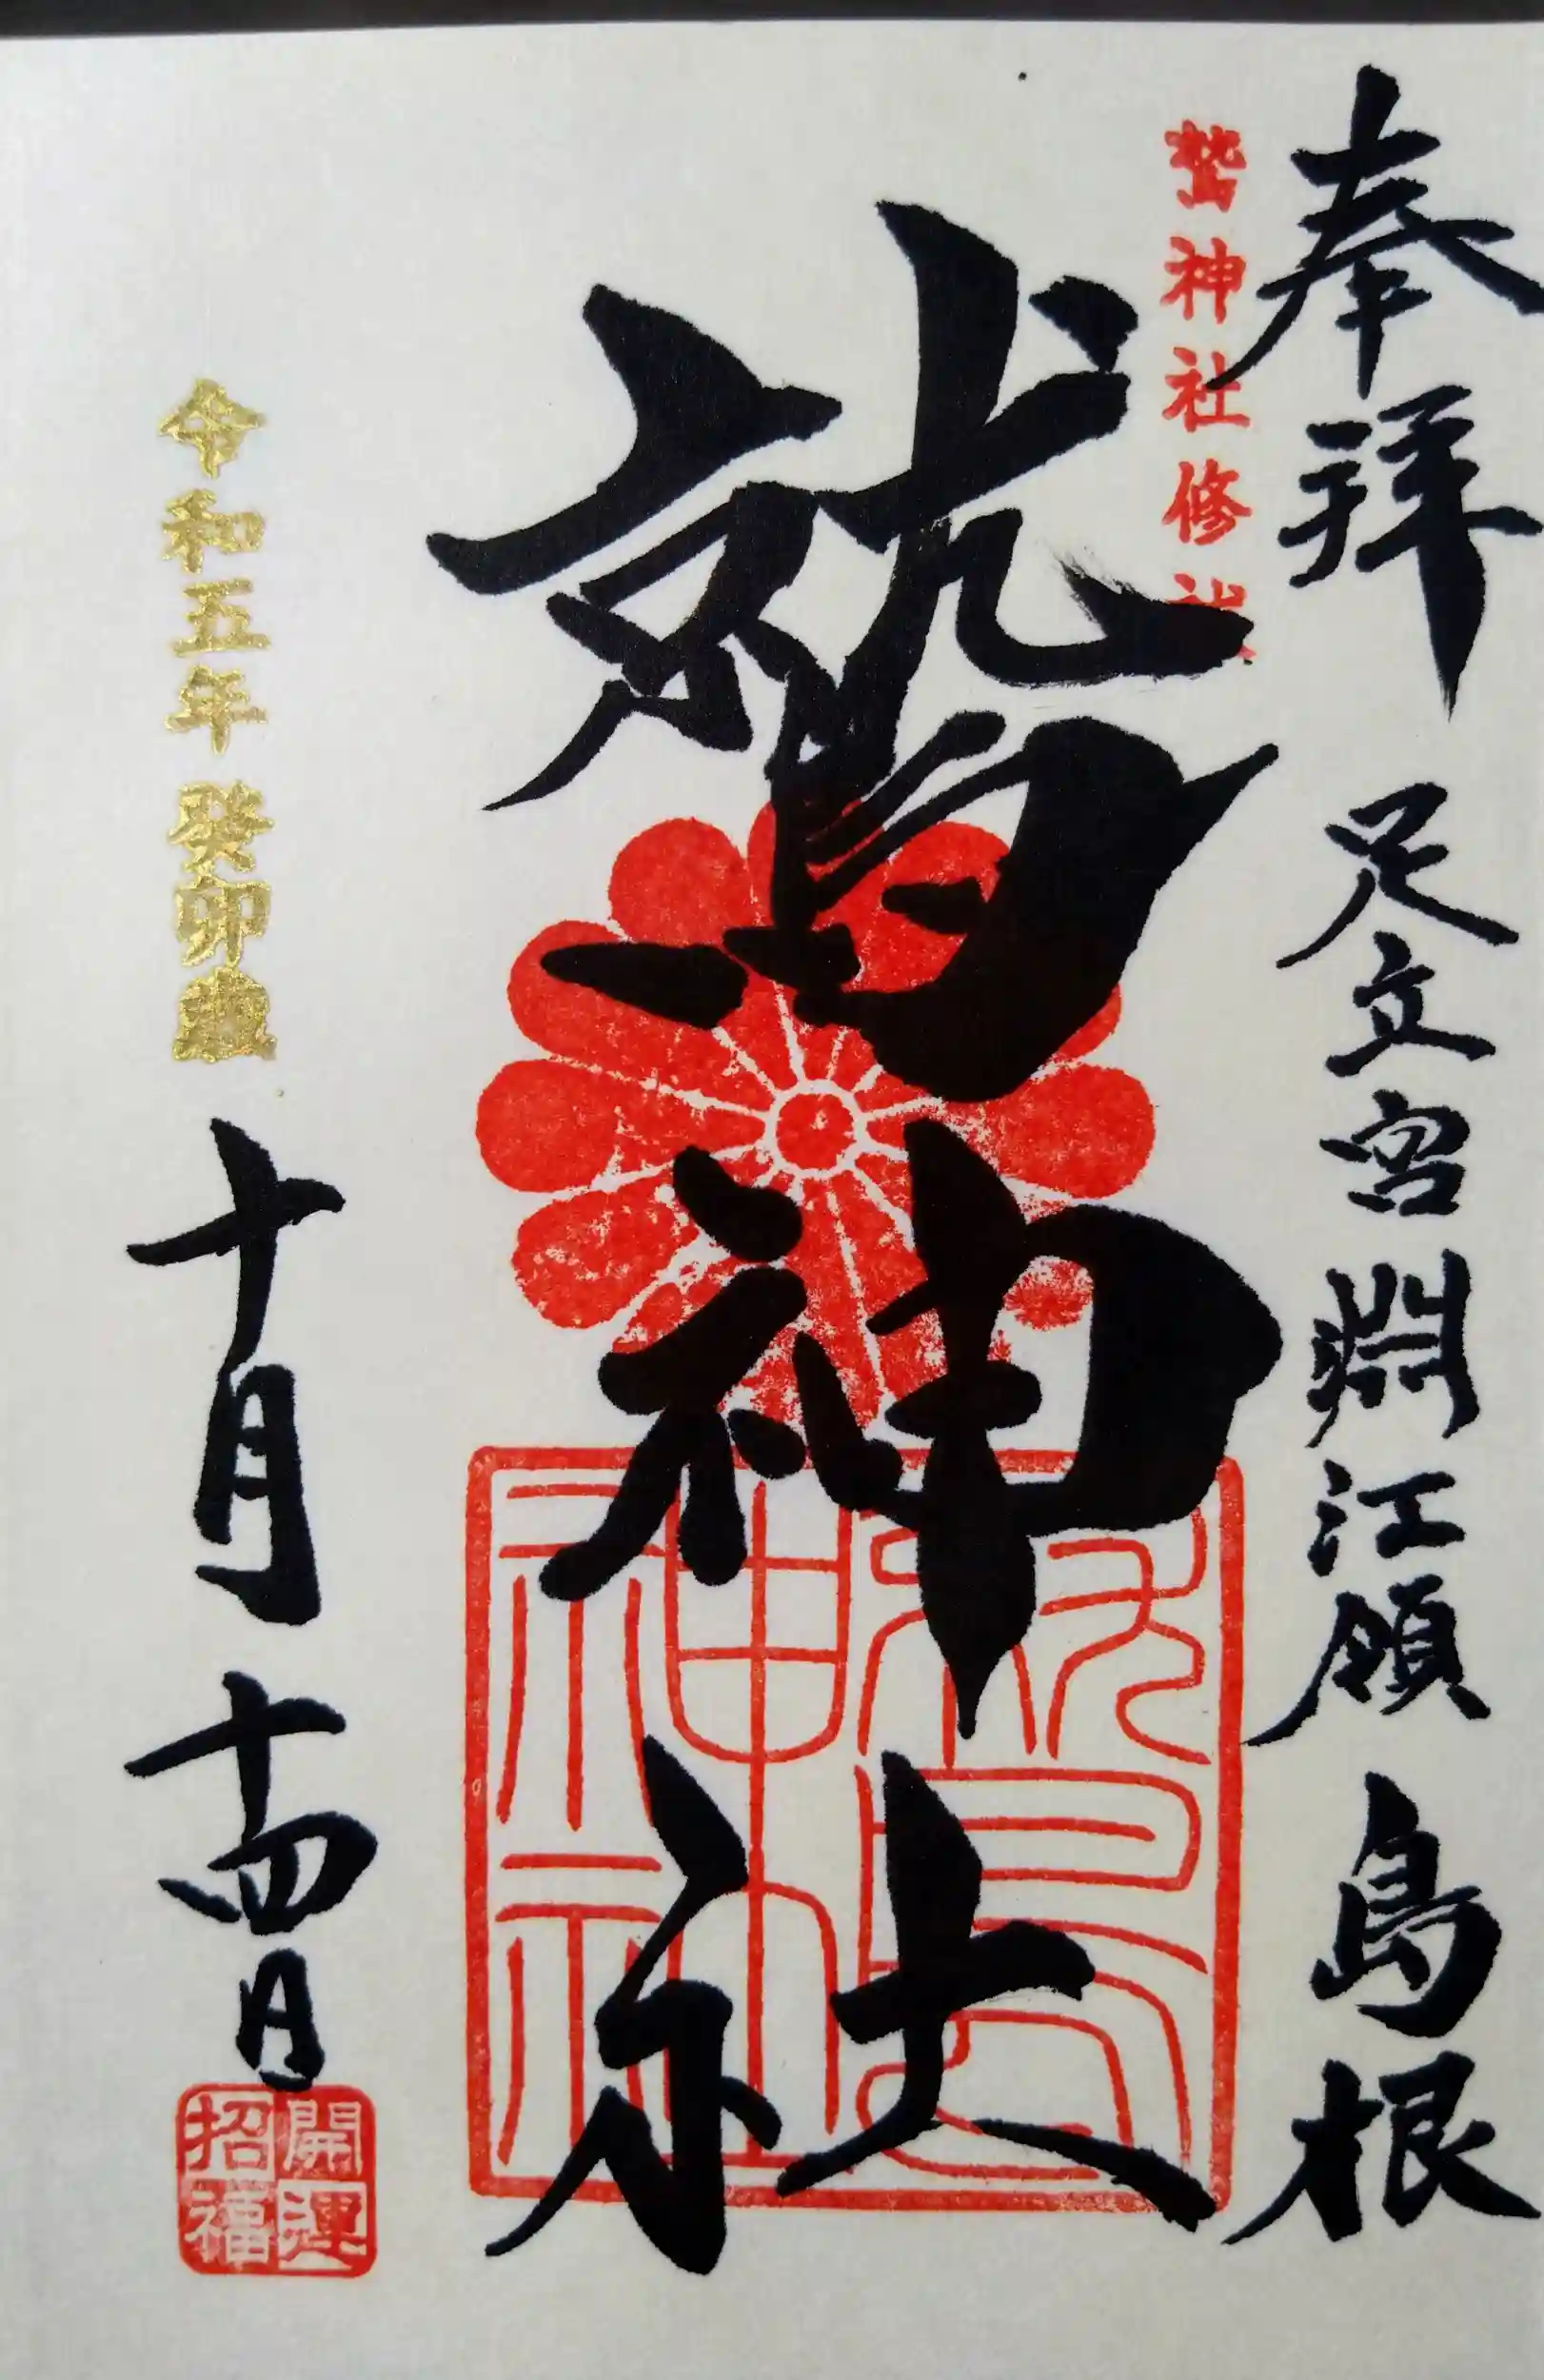 奉拝 足立宮 淵江領 島根
鷲神社修祓
鷲神社
鷲神社
令和五年 癸卯歳 十月 十四日
開運招福